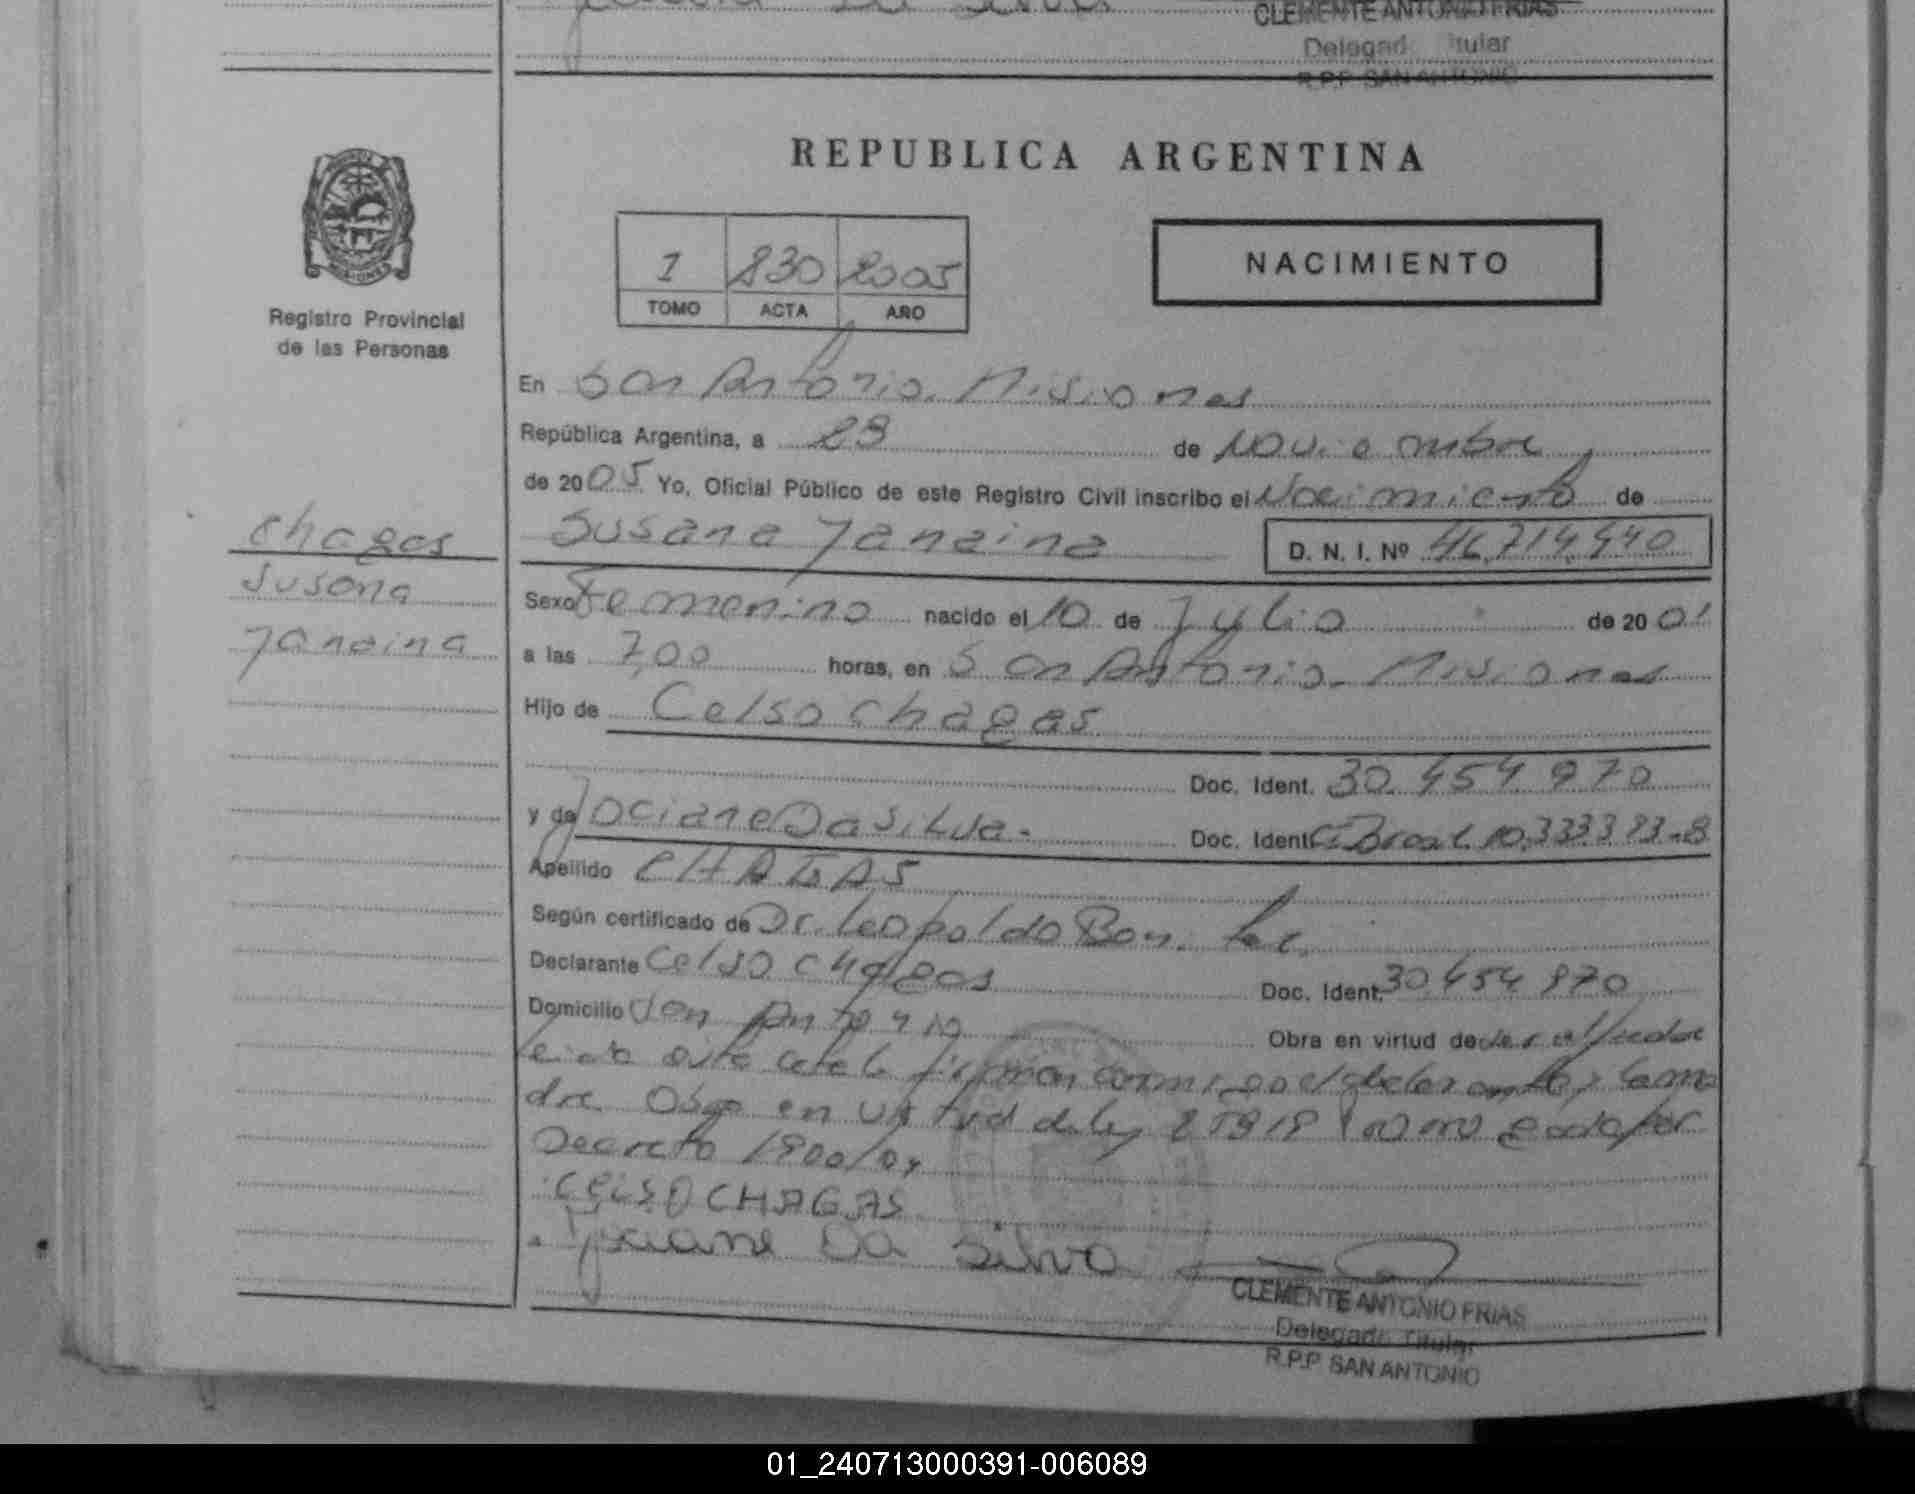 CLEMENTE ANTONIO FRIAS
Delegad Titular
R.P.P. SAN ANTONIO
REPUBLICA ARGENTINA
NACIMIENTO
1 830 2005
TOMO ACTA AÑO
Registro Provincial
de las Personas
En San Antonio. Misiones
República Argentina, a 23 de Noviembre
de 2005 Yo, Oficial Público de este Registro Civil inscribo el Nacimiento de
Susana Janaina D. N. I. Nº 46.714.440
Chagas
Susana
Janaina
Sexo Femenino nacido el 10 de Julio de 2001
a las 7,00 horas, en San Antonio. Misiones
Hijo de Celso Chagas
Doc. Ident. 30.454.970
y de Jociane Da Silva. Doc. Ident. CI Brasil 10.333.373-8
Apellido CHAGAS
Según certificado de Dr. Leopoldo Bon.
Declarante Celso Chagas Doc. Ident. 30.454.970
Domicilio San Antonio Obra en virtud de
leida este acta la firman conmigo el declarante y la ma
dre Obra en virtud de ley
Decreto 1900/04
CELSO CHAGAS
Jociane Da Silva
CLEMENTE ANTONIO FRIAS
Delegado Titular
R.P.P SAN ANTONIO
01_240713000391-006089